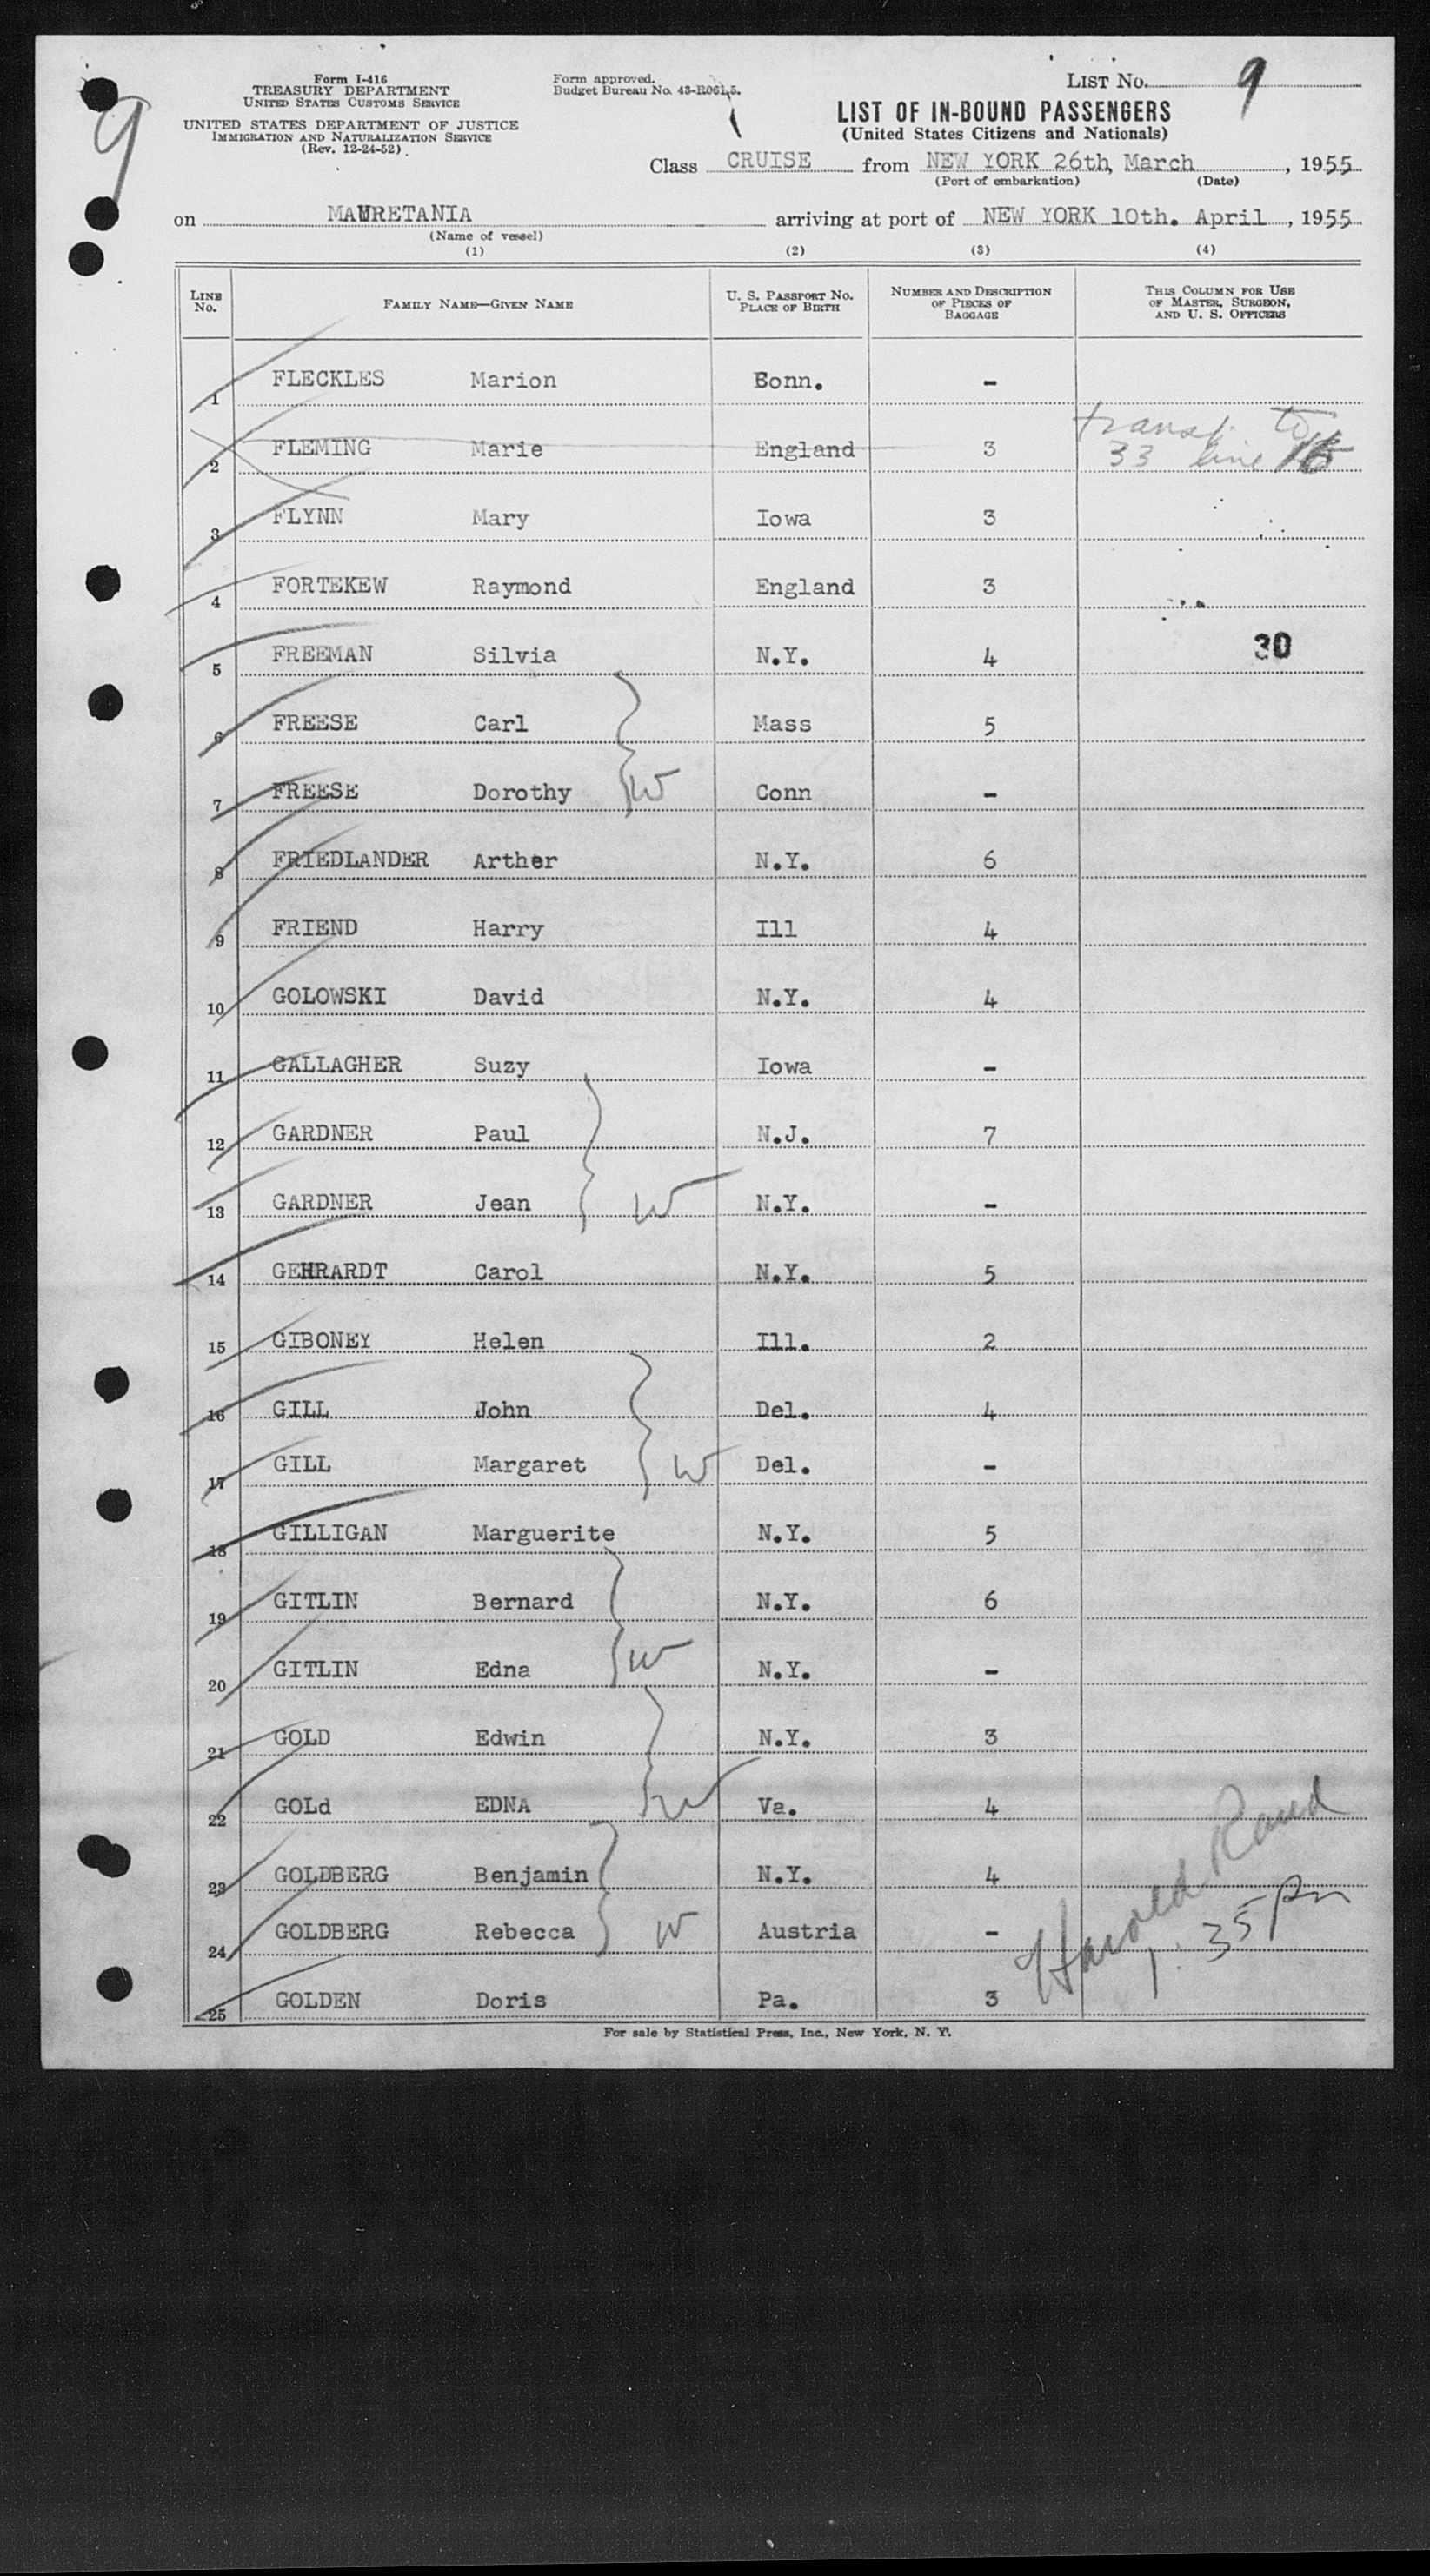 9
Form I-416
TREASURY DEPARTMENT
UNITED STATES CUSTOMS SERVICE
UNITED STATES DEPARTMENT OF JUSTICE
IMMIGRATION AND NATURALIZATION SERVICE
(Rev. 12-24-52)
Form approved.
Budget Bureau No. 43-R061.5.
LIST NO. 9
LIST OF IN-BOUND PASSENGERS
(United States Citizens and Nationals)
Class CRUISE from NEW YORK 26th, March, 1955
(Port of embarkation) (Date)
on MAURETANIA arriving at port of NEW YORK 10th. April, 1955
(Name of vessel)
(1) (2) (3) (4)
LINE NO. FAMILY NAME—GIVEN NAME U. S. PASSPORT NO. PLACE OF BIRTH NUMBER AND DESCRIPTION OF PIECES OF BAGGAGE THIS COLUMN FOR USE OF MASTER, SURGEON, AND U. S. OFFICERS
1 FLECKLES Marion Bonn. -
2 FLEMING Marie England 3 transf. to 33 line
3 FLYNN Mary Iowa 3
4 FORTEKEW Raymond England 3
5 FREEMAN Silvia N.Y. 4 30
6 FREESE Carl Mass 5
7 FREESE Dorothy W Conn -
8 FRIEDLANDER Arther N.Y. 6
9 FRIEND Harry Ill 4
10 GOLOWSKI David N.Y. 4
11 GALLAGHER Suzy Iowa -
12 GARDNER Paul N.J. 7
13 GARDNER Jean W N.Y. -
14 GEHRARDT Carol N.Y. 5
15 GIBONEY Helen Ill. 2
16 GILL John Del. 4
17 GILL Margaret W Del. -
18 GILLIGAN Marguerite N.Y. 5
19 GITLIN Bernard N.Y. 6
20 GITLIN Edna W N.Y. -
21 GOLD Edwin N.Y. 3
22 GOLd EDNA W Va. 4
23 GOLDBERG Benjamin N.Y. 4
24 GOLDBERG Rebecca W Austria -
25 GOLDEN Doris Pa. 3
Harold Rand
1.35 Pm
For sale by Statistical Press, Inc., New York, N. Y.